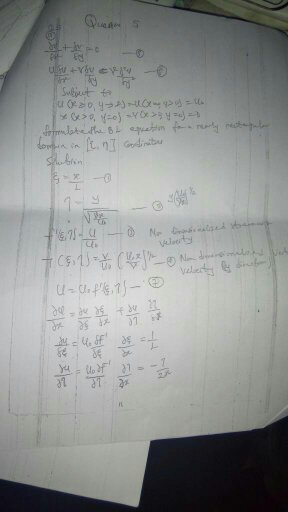 Question 5
∂u/∂x + ∂v/∂y = 0 — ①
u ∂u/∂x + v ∂u/∂y = ν ∂²u/∂y² — ②
Subject to
u(x≥0, y→∞) = u(x=0, y>0) = U₀
(x>0, y=0) = v(x>0, y=0) = 0
formulate the BL equation for a nearly rectangular
domain in [ξ, η] Coordinates
Solution
ξ = x/L — ①
η = y/√(νx/U₀) — ③
f'(ξ, η) = u/U₀ — Non dimensionalized streamwise
velocity
(ξ, η) = v/U₀ (U₀x/ν)^½ — Non dimensionalized
velocity (y direction)
u = U₀ f'(ξ, η) — ⑦
∂u/∂x = ∂u/∂ξ ∂ξ/∂x + ∂u/∂η ∂η/∂x
∂u/∂ξ = U₀ ∂f'/∂ξ ∂ξ/∂x = 1/L
∂u/∂η = U₀ ∂f'/∂η ∂η/∂x = -η/2x